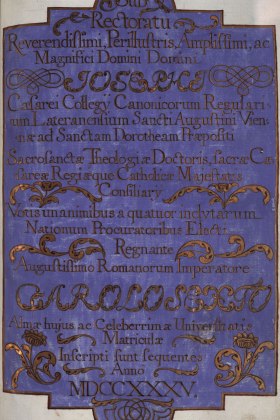 Sub
Rectoratu
Reverendissimi, Perillustris, Amplissimi, ac
Magnifici Domini Domini
IOSEPHI
Cæsarei Collegy Canonicorum Regulari
um Lateranensium Sancti Augustini Vien-
næ ad Sanctam Dorotheam Præpositi
Sacrosanctæ Theologiæ Doctoris, sacræ Cæ
sareæ Regiæque Catholicæ Majestatis
Consiliary
Votis unanimibus a quatuor inclytarum
Nationum Procuratoribus Electi
Regnante
Augustissimo Romanorum Imperatore
CAROLO SEXTO
Almæ hujus ac Celeberrimæ Universitatis
Matriculæ
Inscripti sunt sequentes
Anno
MDCCXXXV.